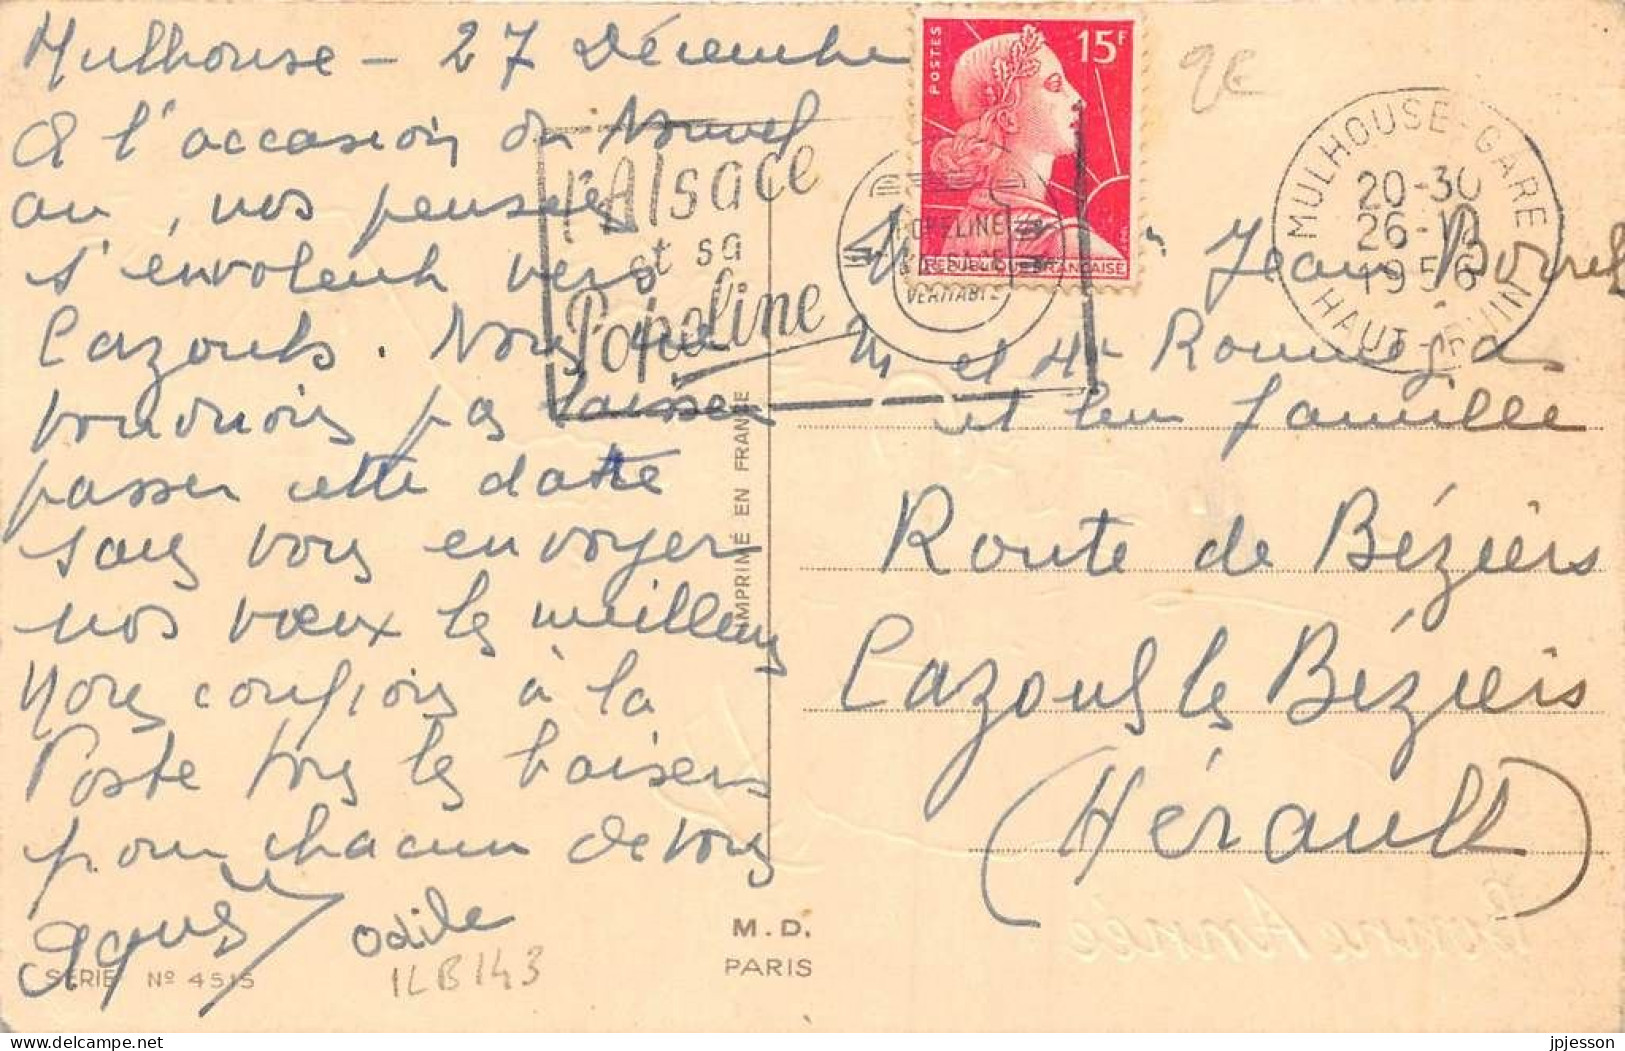 Mulhouse - 27 Décembre
A l'occasion du Nouvel
an, nos pensées
s'envolent vers
Cazouls. Nous ne
voudrions pas laisser
passer cette date
sans vous envoyer
nos vœux les meilleurs
Nous confions à la
Poste tous les baisers
pour chacun de vous
Odile
SERIE No 4515
1LB143
IMPRIMÉ EN FRANCE
M.D.
PARIS
l'Alsace
et sa
Popeline
POPELINE
VÉRITABLE
POSTES
15F
REPUBLIQUE FRANÇAISE
2€
MULHOUSE-GARE
20-30
26-12
1956
HAUT-RHIN
Jean Borrel
M et Me
et leur famille
Route de Béziers
Cazouls les Béziers
(Hérault)
Bonne Année
jpjesson